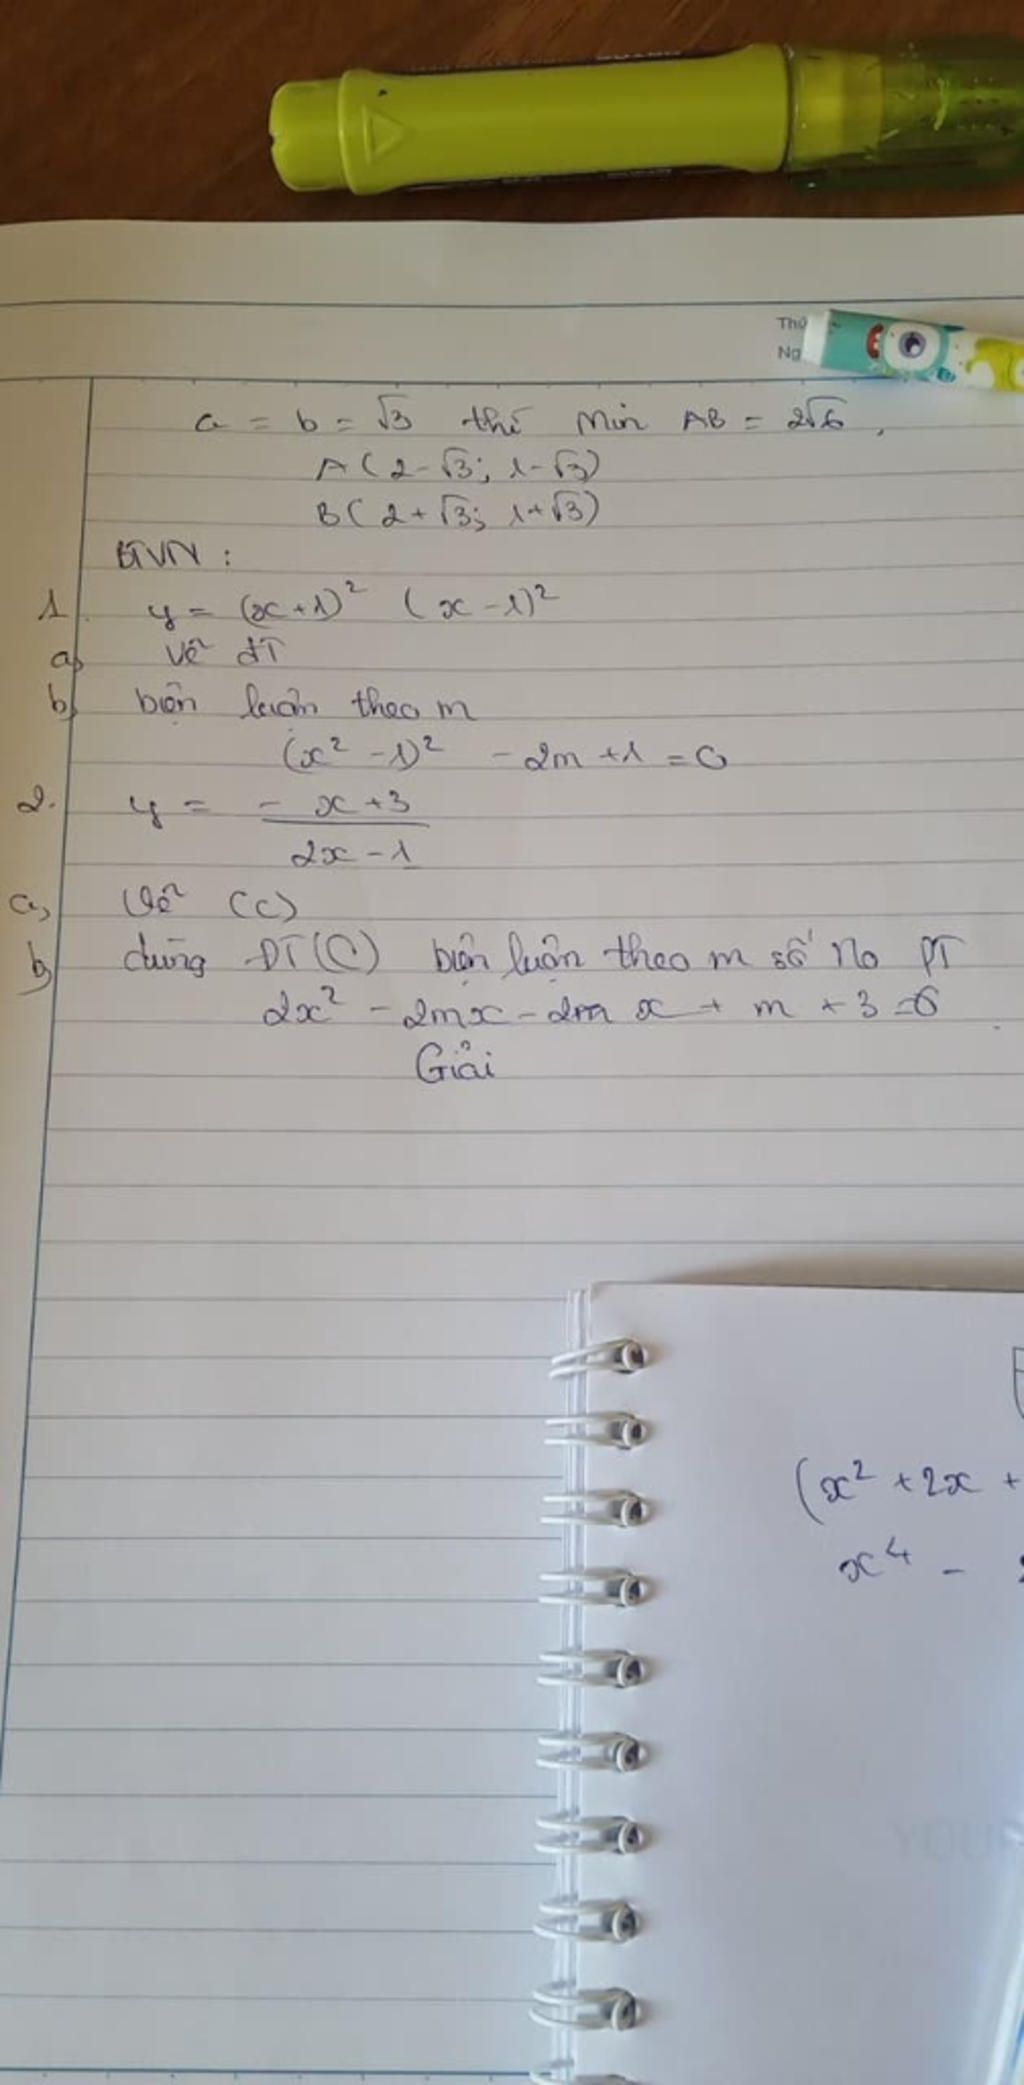 Thứ
Ng
a = b = √3 thì Min AB = 2√6,
A(2-√3; 1-√3)
B(2+√3; 1+√3)
BTVN :
1. y = (x+1)² (x-1)²
a, Vẽ ĐT
b, biện luận theo m
(x² - 1)² - 2m + 1 = 0
2. y = \frac{-x+3}{2x-1}
a, Vẽ (C)
b, dùng ĐT(C) biện luận theo m số No PT
2x² - 2mx - 2m x + m + 3 = 0
Giải
(x² + 2x +
x⁴ -
YOUR